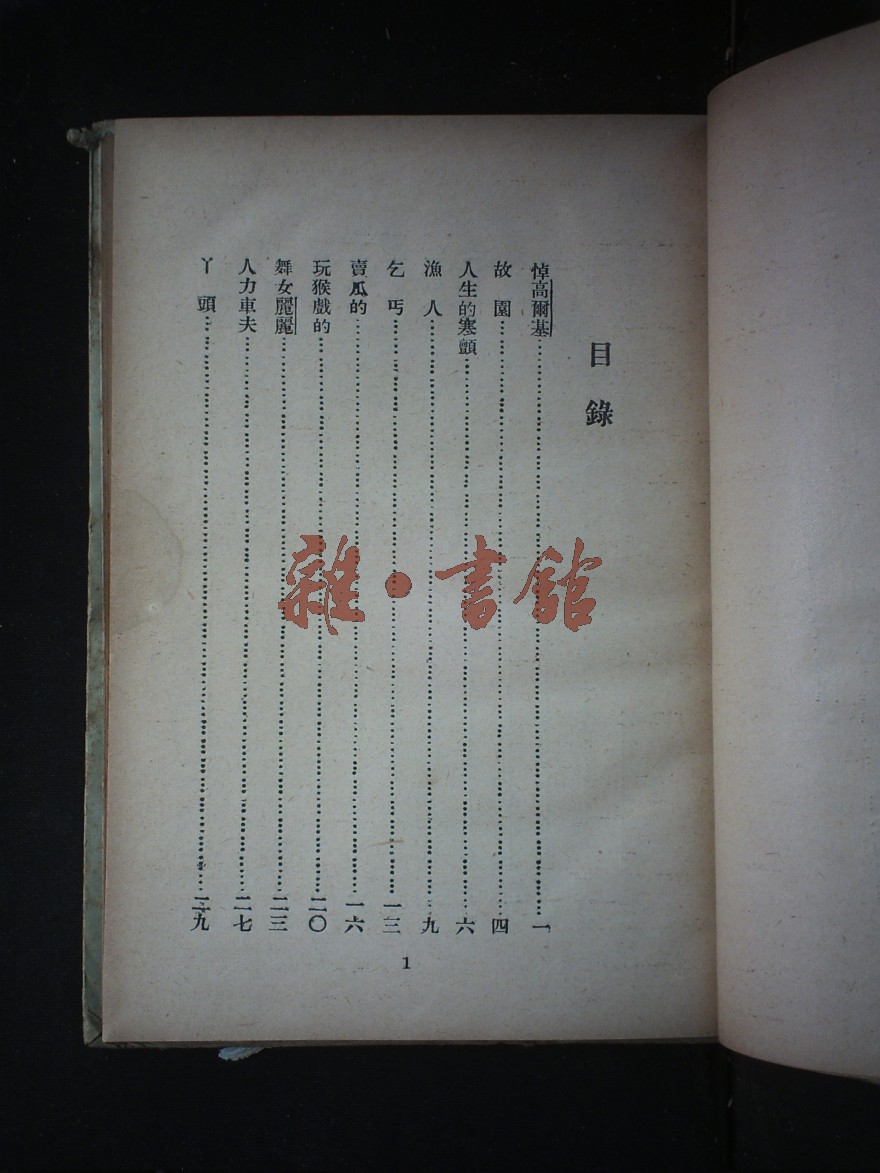 目錄
悼高爾基……一
故園……四
人生的寒顫……六
漁人……九
乞丐……一三
賣瓜的……一六
玩猴戲的……二〇
舞女麗麗……二三
人力車夫……二七
丫頭……二九
1
雜·書館